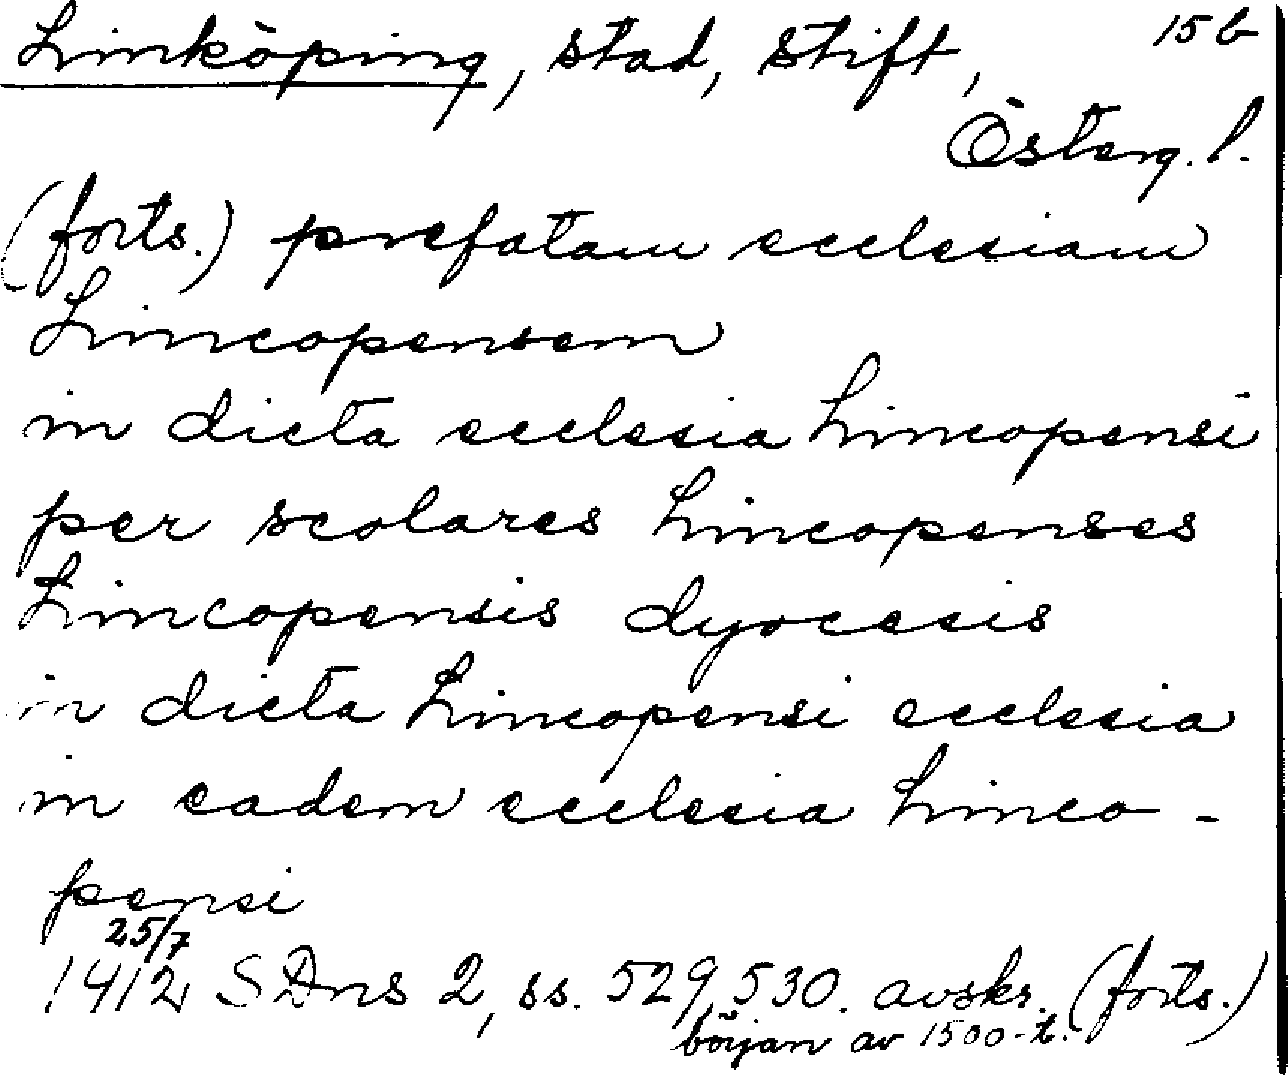 Linköping, stad, stift, 15 b
Österg. l.
(forts.) prefatam ecclesiam
Lincopensem
in dicta ecclesia Lincopensi
per scolares Lincopenses
Lincopensis dyocesis
in dicta Lincopensi ecclesia
in eadem ecclesia Linco-
pensi
25/7
1412 SDns 2, ss. 529, 530. avskr. (forts.)
början av 1500-t.